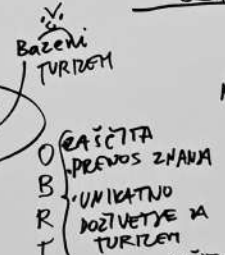 Bazeni
TURIZEM
ZAŠČITA
PRENOS ZNANJA
UNIKATNO
DOŽIVETJE ZA
TURIZEM
O
B
R
T